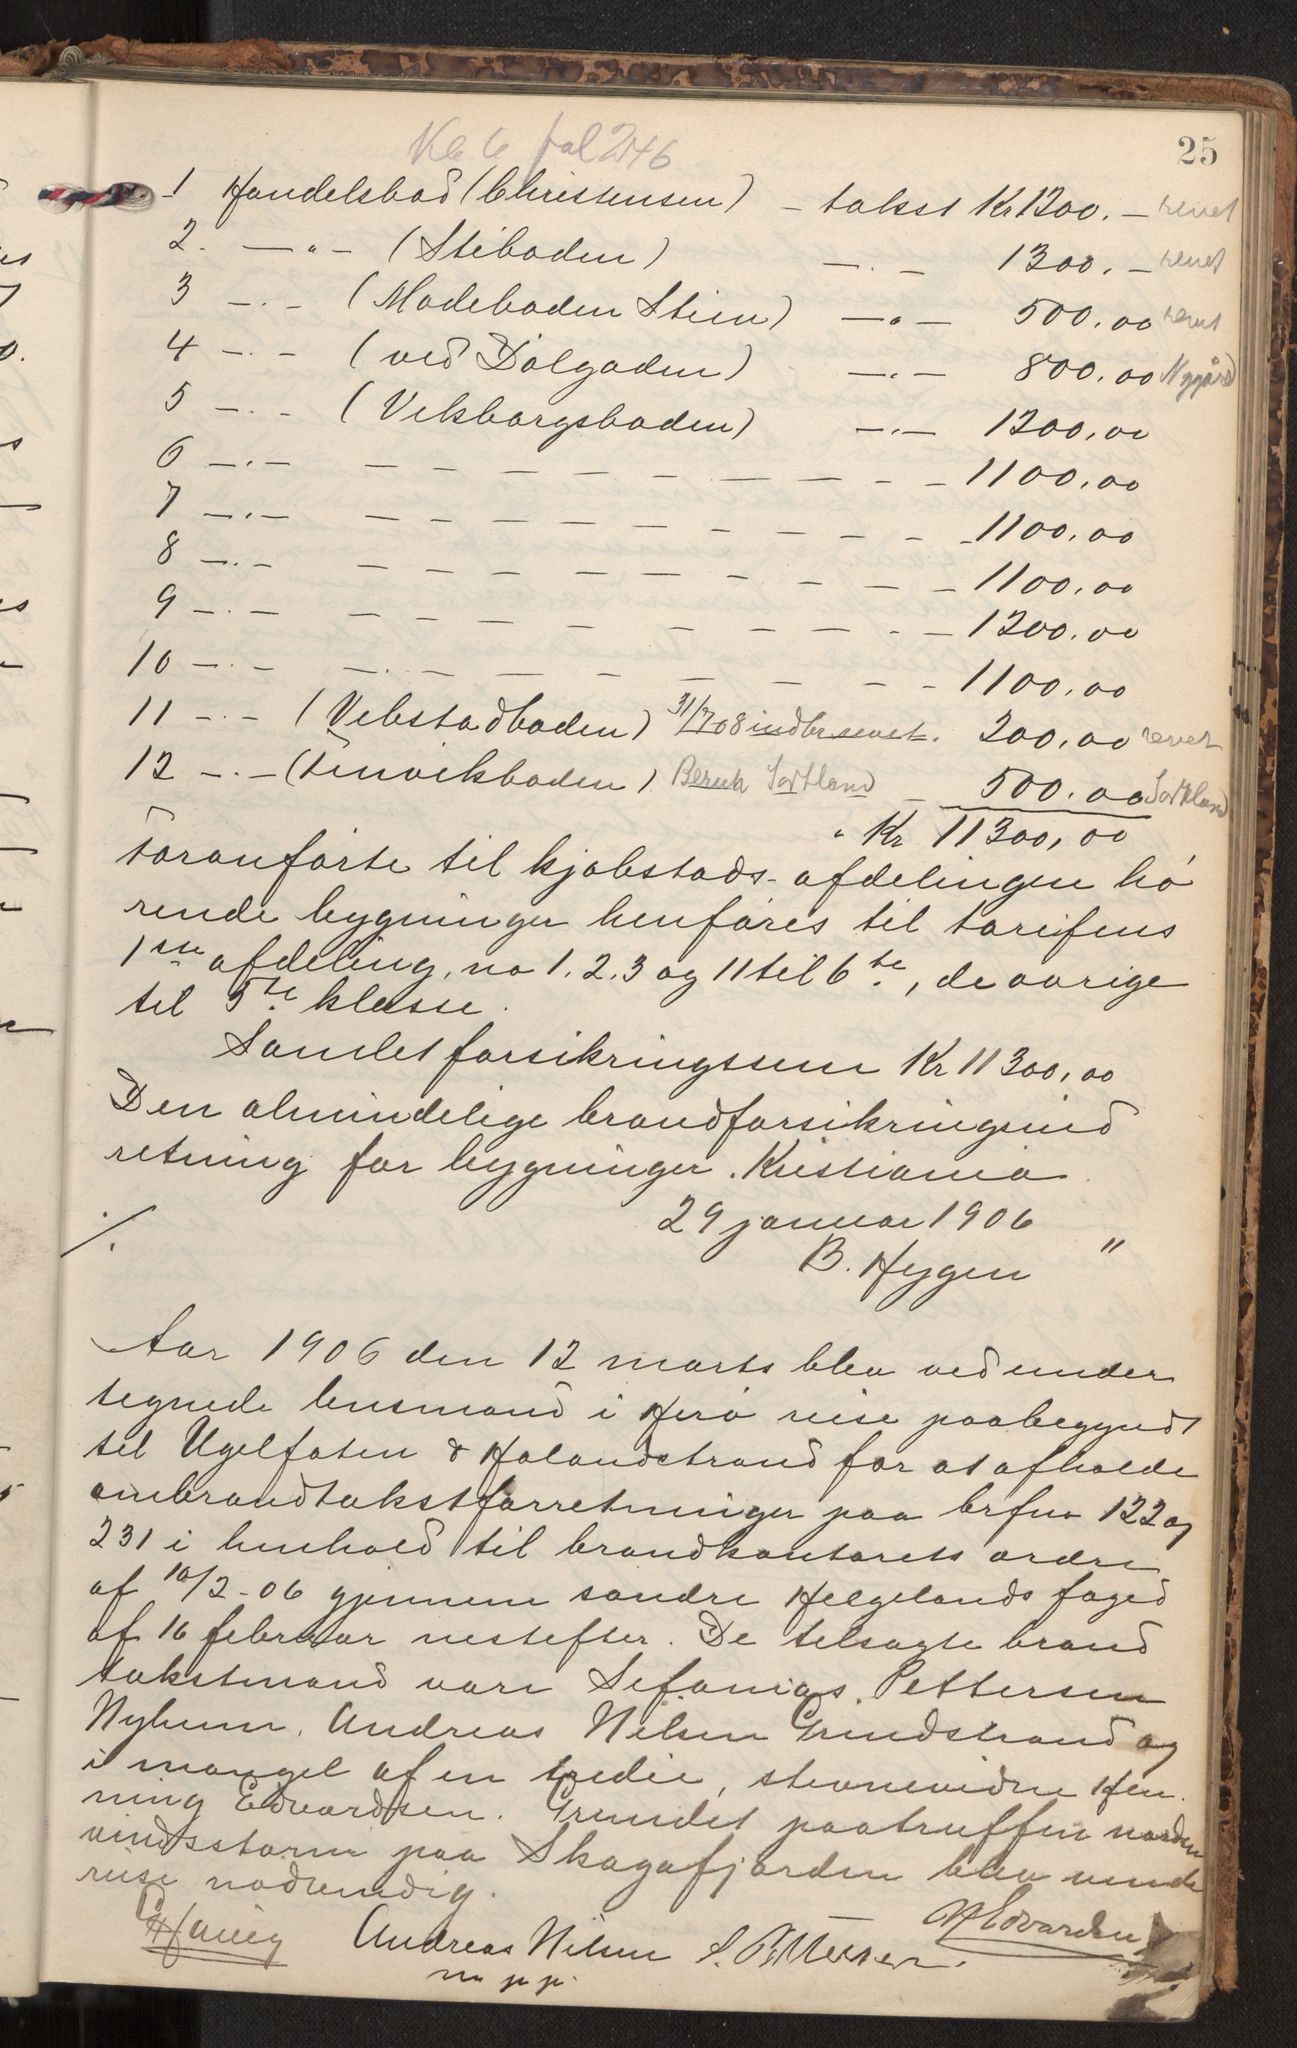 25
fol 246
1 Handelsbod (Christensen) – takst Kr 1200. – revet
2. –„– (Stiboden) –.– 1300. – revet
3 –.– (Modeboden Stien) –„– 500.00 revet
4 –.– (ved Dolgaden) –.– 800.00 Nygård
5 –.– (Viksborgsboden) –.– 1200,00
6 –.– – – – – – – – – 1100,00
7 –.– – – – – – – – – 1100,00
8 –.– – – – – – – – – 1100,00
9 –.– – – – – – – – – 1200.00
10 –.– –.– – – – – – – 1100,00
11 –.– (Vebstadboden) 31/7 08 indb revet. 200,00 revet
12 –.– (Finvikboden) Sortland – 500.00 Sortland
„ Kr 11300,00
Foranførte til kjøbstads-afdelingen hø
rende bygninger henføres til tarifens
1ste afdeling, no 1. 2. 3 og 11 til 6te, de øvrige
til 5te klasse.
Samlet forsikringssum Kr 11300,00
Den almindelige brandforsikringsind
retning for bygninger. Kristiania
29 januar 1906
./. B. Hygen "
Aar 1906 den 12 marts blev ved under
tegnede lensmand i Herø reise paabegyndt
til Ugelfoten & Halandstrand for at afholde
ombrandtakstforretninger paa brfno 122 og
231 i henhold til brandkontorets ordre
af 10/2-06 gjennem søndre Helgelands foged
af 16 februar nestefter. De tilsagte brand
takstmænd vare Sefanias Pettersen
Nyheim. Andreas Nilsen Grindstrand og
i mangel af en tredie, stevnevidne Hen
ning Edvardsen. Grundet paatruffen norden
vindsstorm paa Skagafjorden blev vende
reise nødvendig.
Andreas Nilsen S. Pettersen. H Edvardsen
m p p.